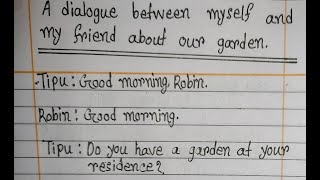 A dialogue between myself and
my friend about our garden.
Tipu: Good morning, Robin.
Robin: Good morning.
Tipu: Do you have a garden at your
residence?